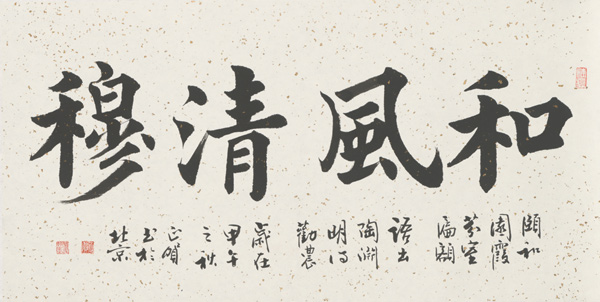 和風清穆
頤和
園霞
芬室
匾額
語出
陶淵
明詩
勸農
歲在
甲午
之秋
正賀
書於
北京